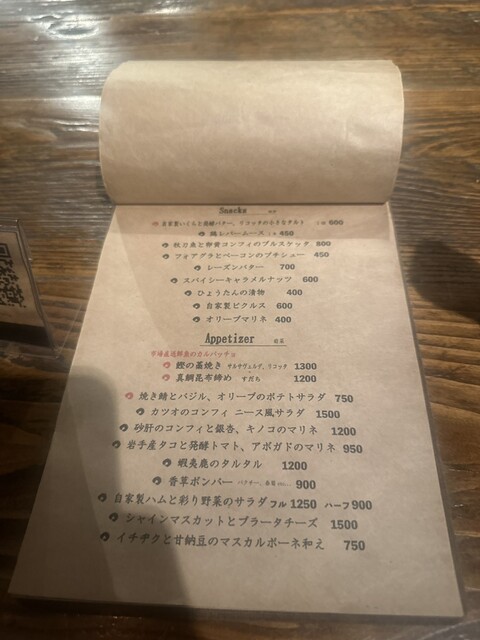 Snacks
自家製いくらと発酵バター、リコッタの小さなタルト 600
鶏レバームース 450
秋刀魚と卵黄コンフィのブルスケッタ 800
フォアグラとベーコンのブチシュー 450
レーズンバター 700
スパイシーキャラメルナッツ 600
ひょうたんの漬物 400
自家製ピクルス 600
オリーブマリネ 400
Appetizer 前菜
市場直送鮮魚のカルパッチョ
鰹の藁焼き サルサヴェルデ、リコッタ 1300
真鯛昆布締め すだち 1200
焼き鯖とバジル、オリーブのポテトサラダ 750
カツオのコンフィ ニース風サラダ 1500
砂肝のコンフィと銀杏、キノコのマリネ 1200
岩手産タコと発酵トマト、アボガドのマリネ 950
蝦夷鹿のタルタル 1200
香草ボンバー パクチー、春菊 etc... 900
自家製ハムと彩り野菜のサラダ フル 1250 ハーフ 900
シャインマスカットとブラータチーズ 1500
イチヂクと甘納豆のマスカルポーネ和え 750